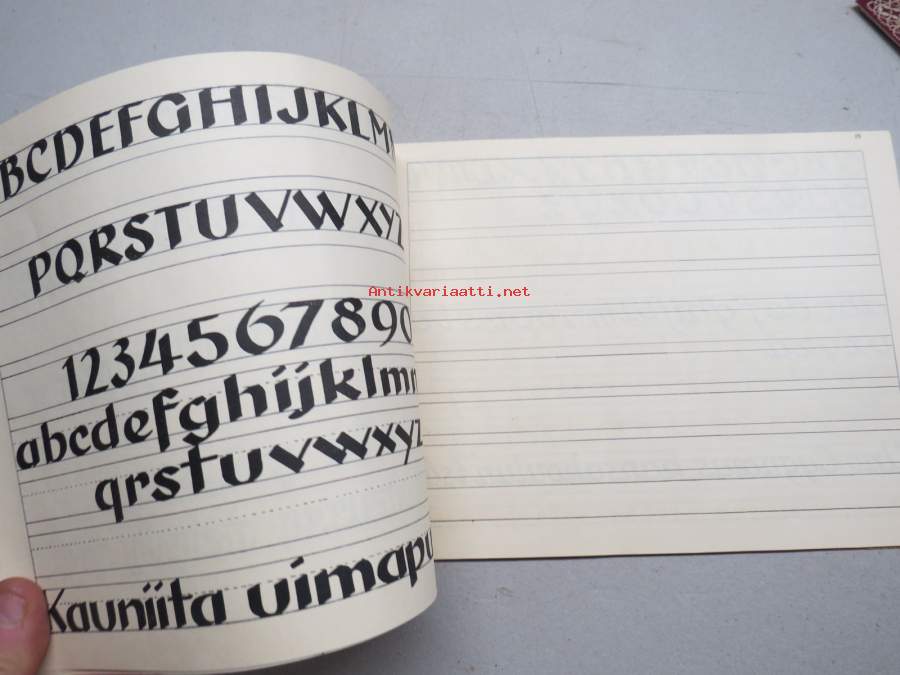 BCDEFGHIJKLM
PQRSTUVWXYZ
1234567890
abcdefghijklmn
qrstuvwxyz
Kauniita uimapu
Antikvariaatti.net